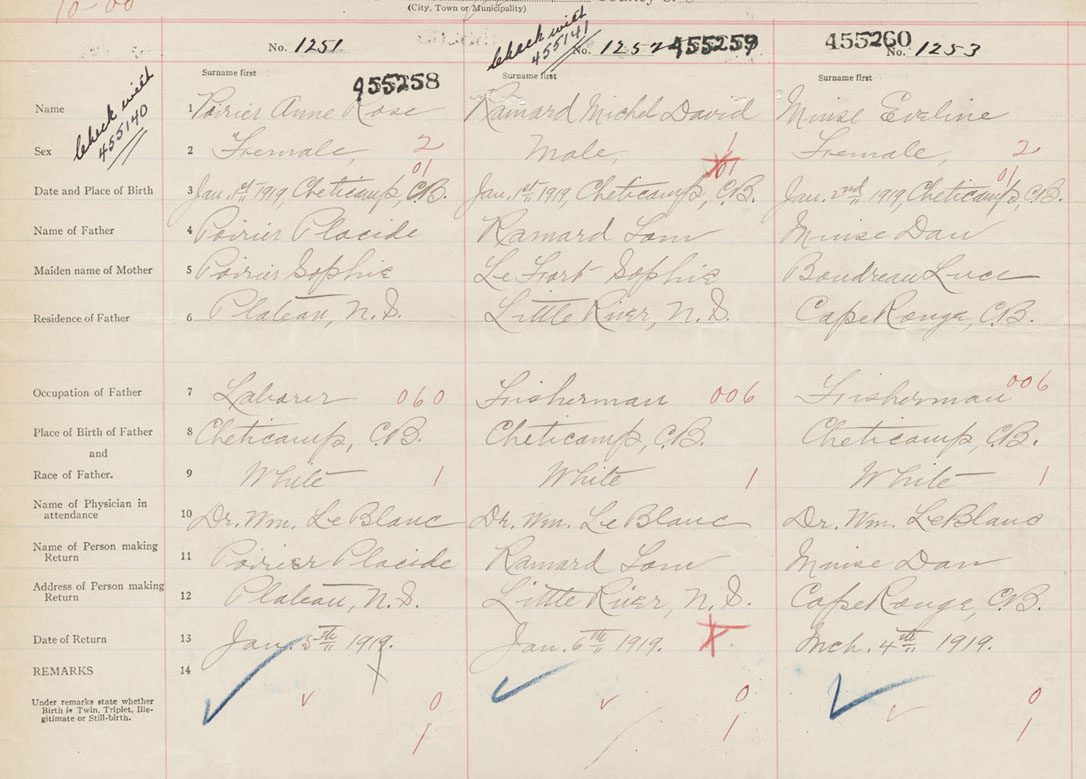 10-00
(City, Town or Municipality)
County of
No. 1251
Check with 455141
No. 1252 455259
455260 No. 1253
Surname first
Surname first
Surname first
Check with 455140
455258
Name 1 Poirier Anne Rose Ramard Michel David Muise Eveline
Sex 2 Fremale, 2 Male, 1 Fremale, 2
01 01 01
Date and Place of Birth 3 Jan. 1st 1919, Cheticamp, C.B. Jan. 1st 1919, Cheticamp, C.B. Jan. 2nd 1919, Cheticamp, C.B.
Name of Father 4 Poirier Placide Ramard Tom Muise Dan
Maiden name of Mother 5 Poirier Sophie LeFort Sophie Boudreau Luce
Residence of Father 6 Plateau, N.S. Little River, N.S. Cape Rouge, C.B.
Occupation of Father 7 Laborer 060 Fisherman 006 Fisherman 006
Place of Birth of Father 8 Cheticamp, C.B. Cheticamp, C.B. Cheticamp, C.B.
and
Race of Father. 9 White 1 White 1 White 1
Name of Physician in
attendance 10 Dr. Wm. LeBlanc Dr. Wm. LeBlanc Dr. Wm. LeBlanc
Name of Person making
Return 11 Poirier Placide Ramard Tom Muise Dan
Address of Person making
Return 12 Plateau, N.S. Little River, N.S. Cape Rouge, C.B.
Date of Return 13 Jan. 5th 1919. Jan. 6th 1919. Mch. 4th 1919.
REMARKS 14
Under remarks state whether
Birth is Twin, Triplet, Ille-
gitimate or Still-birth.
0 0 0
1 1 1